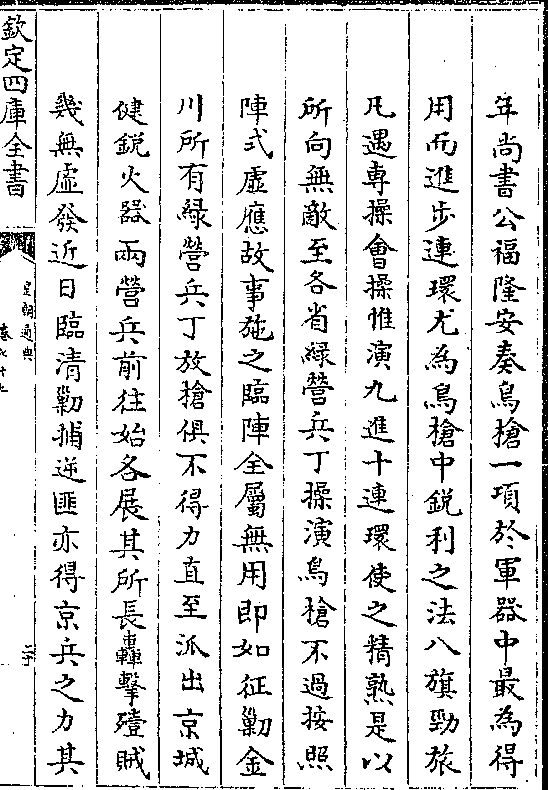 年尚書公福隆安奏鳥槍一項於軍器中最為得
用而進步連環尤為鳥槍中鋭利之法八旗勁旅
凡遇専操㑹操惟演九進十連環使之精熟是以
所向無敵至各省緑營兵丁操演鳥槍不過按照
陣式虛應故事施之臨陣全屬無用即如征勦金
川所有緑營兵丁放槍俱不得力直至派出京城
健鋭火器兩營兵前往始各展其所長轟擊殪賊
幾無虛發近日臨清勦捕逆匪亦得京兵之力其
欽定四庫全書
皇朝通典
卷七十九
二十